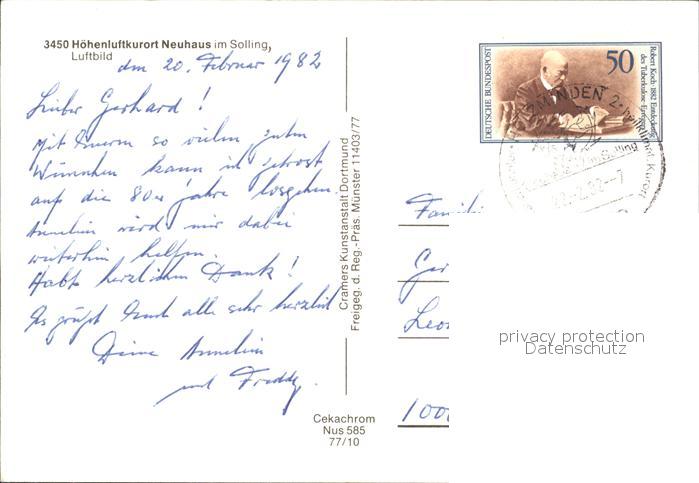 3450 Höhenluftkurort Neuhaus im Solling,
Luftbild
den 20. Februar 1982
Lieber Gerhard!
Mit Euern so vielen guten
Wünschen kann ich getrost
auf die 80er Jahre losgehen.
Annelien wird mir dabei
weiterhin helfen.
Habt herzlichen Dank!
Es grüßt Euch alle sehr herzlich
Deine Annelien
und Freddy.
Cramers Kunstanstalt Dortmund
Freigeg. d. Reg.-Präs. Münster 11403/77
Cekachrom
Nus 585
77/10
DEUTSCHE BUNDESPOST
50
Robert Koch · 1882 Entdeckung
des Tuberkulose-Erregers
heilklimat. Kurort
im Solling
22.-2.82--7
Famili
Ger
Leo
1000
privacy protection
Datenschutz